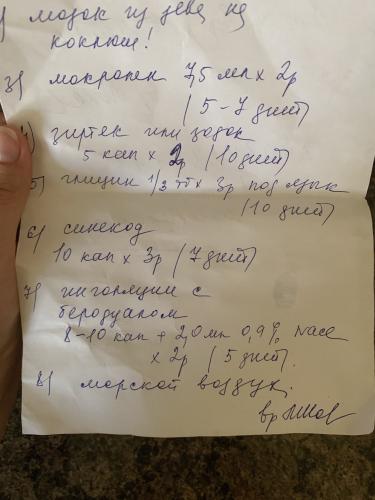 ) мазок из зева на
коклюш!
3) макропен 7,5 мл x 2р
(5-7 дней)
4) зиртек или зодак
5 кап x 2р (10 дней)
5) глицин 1/2 тб x 3р под язык
(10 дней)
6) синекод
10 кап x 3р (7 дней)
7) ингаляции с
беродуалом
8-10 кап + 2,0 мл 0,9% NaCl
x 2р (5 дней).
8) морской воздух.
вр